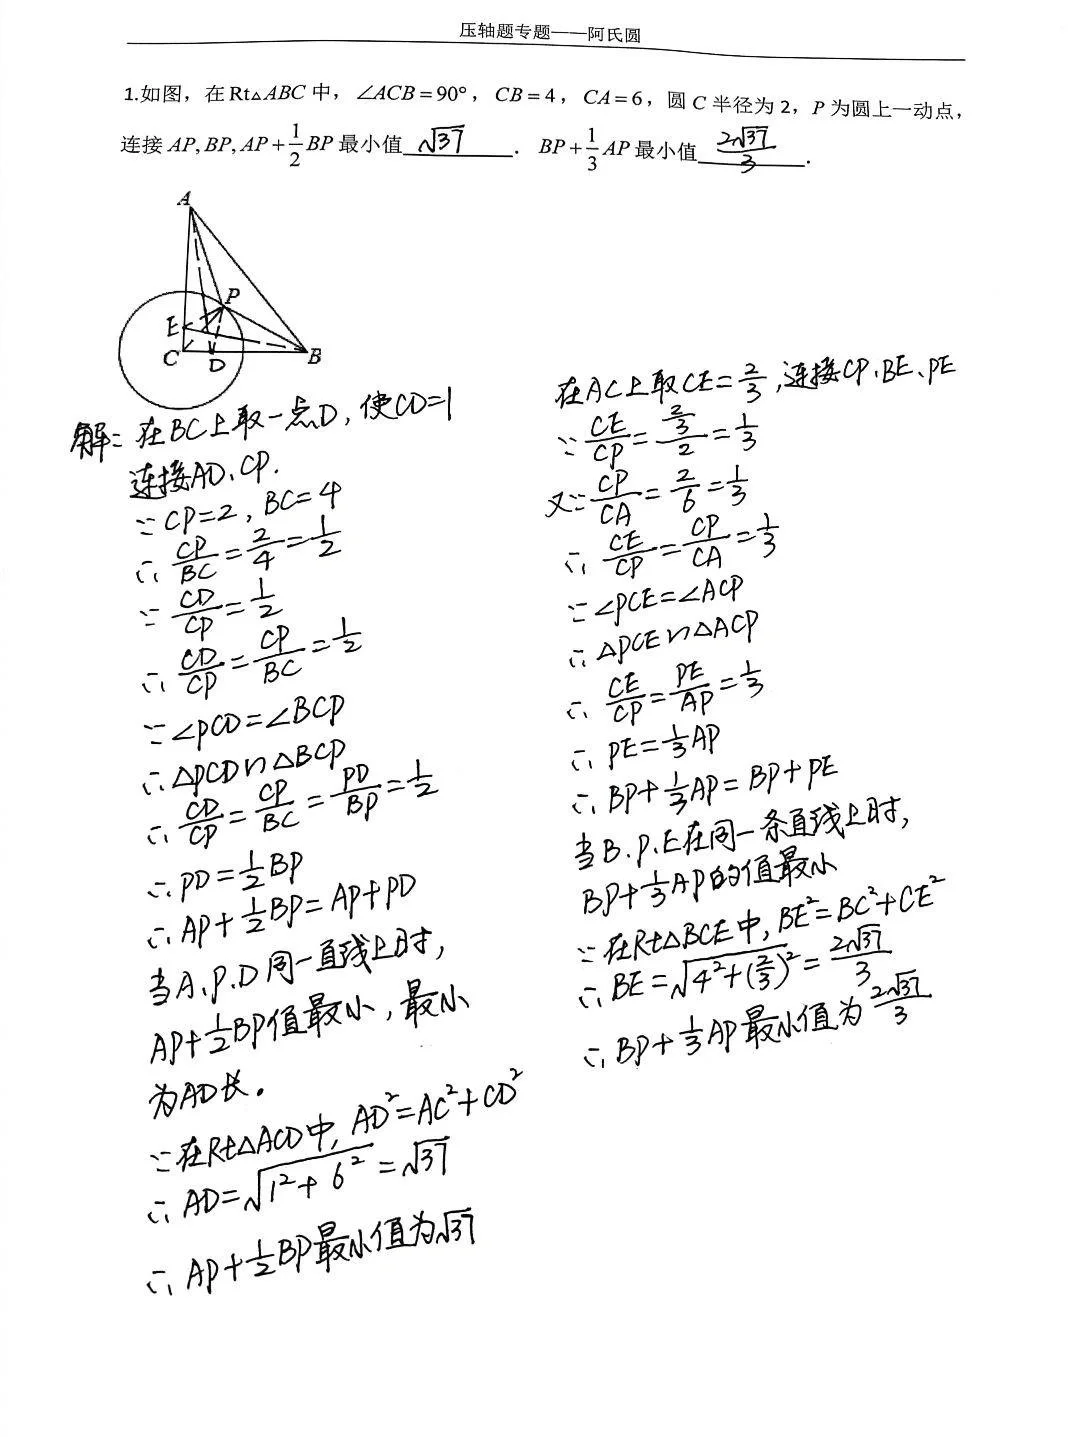 压轴题专题——阿氏圆
1.如图，在Rt△ABC中，∠ACB=90°，CB=4，CA=6，圆C半径为2，P为圆上一动点，
连接AP,BP,AP+1/2BP最小值 √37 . BP+1/3AP最小值 2√37/3 .
A
P
E
C
D
B
解：在BC上取一点D，使CD=1
连接AD、CP.
∵CP=2，BC=4
∴CP/BC=2/4=1/2
∵CD/CP=1/2
∴CD/CP=CP/BC=1/2
∵∠PCD=∠BCP
∴△PCD∽△BCP
∴CD/CP=CP/BC=PD/BP=1/2
∴PD=1/2BP
∴AP+1/2BP=AP+PD
当A、P、D同一直线上时，
AP+1/2BP值最小，最小
为AD长。
∵在Rt△ACD中，AD²=AC²+CD²
∴AD=√(1²+6²)=√37
∴AP+1/2BP最小值为√37
在AC上取CE=2/3，连接CP、BE、PE
∵CE/CP=(2/3)/2=1/3
又∵CP/CA=2/6=1/3
∴CE/CP=CP/CA=1/3
∵∠PCE=∠ACP
∴△PCE∽△ACP
∴CE/CP=PE/AP=1/3
∴PE=1/3AP
∴BP+1/3AP=BP+PE
当B、P、E在同一条直线上时，
BP+1/3AP的值最小
∵在Rt△BCE中，BE²=BC²+CE²
∴BE=√(4²+(2/3)²)=2√37/3
∴BP+1/3AP最小值为2√37/3